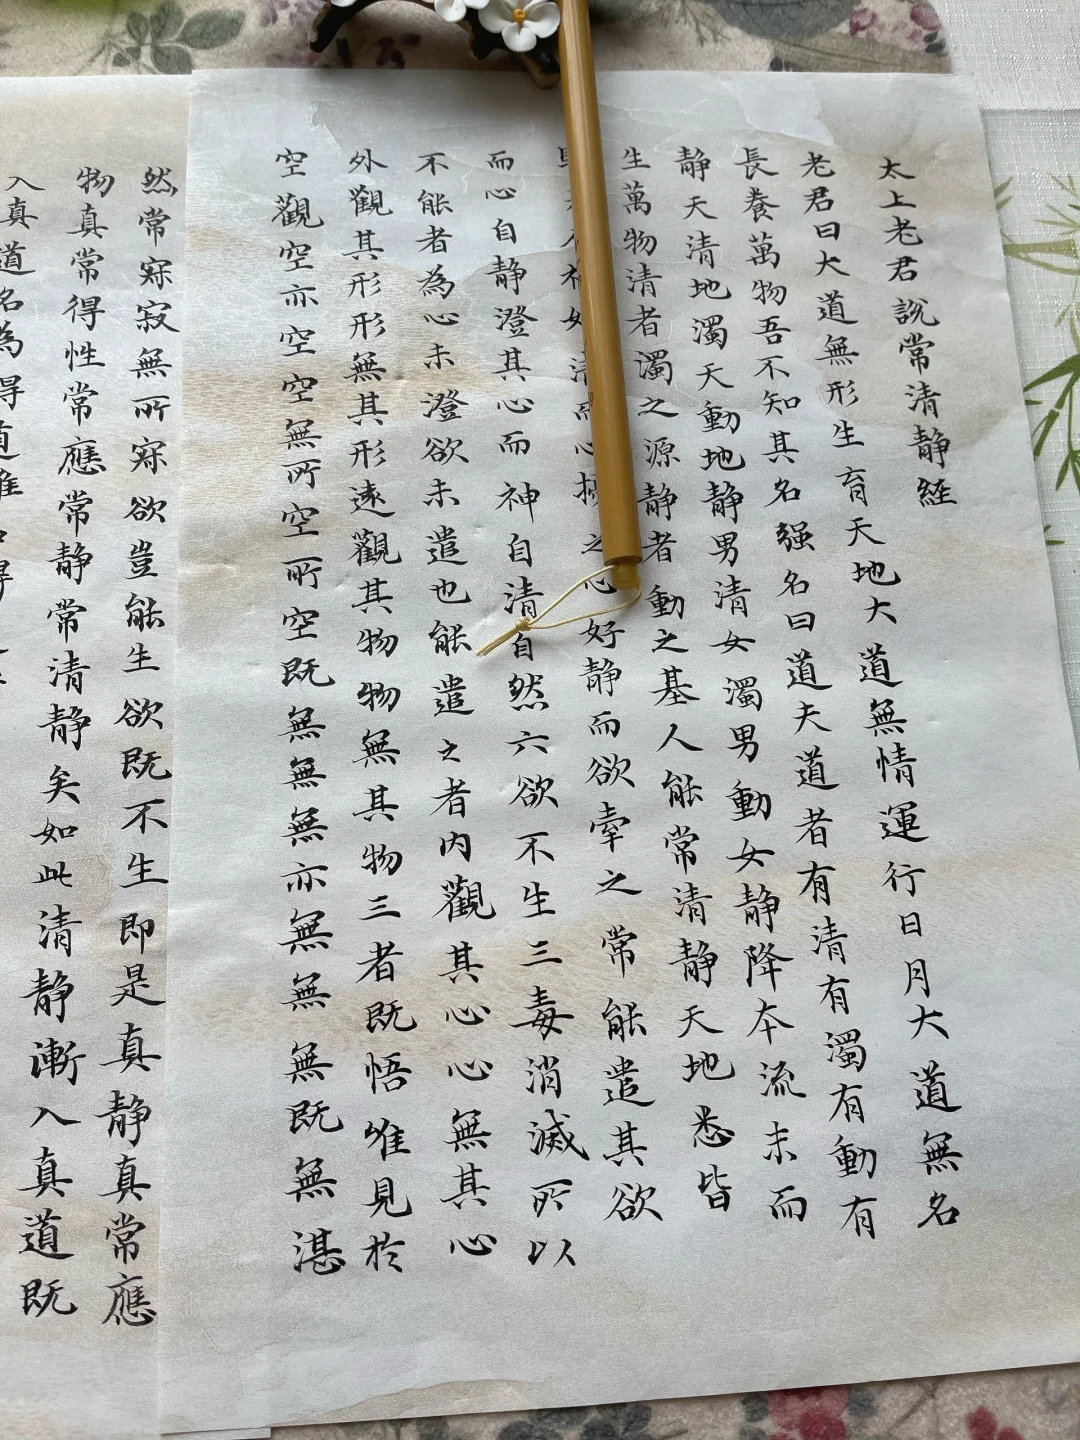 太上老君說常清静經
老君曰大道無形生育天地大道無情運行日月大道無名
長養萬物吾不知其名强名曰道夫道者有清有濁有動有
静天清地濁天動地静男清女濁男動女静降本流末而
生萬物清者濁之源静者動之基人能常清静天地悉皆
清而心擾之心好静而欲牽之常能遣其欲
而心自静澄其心而神自清自然六欲不生三毒消滅所以
不能者為心未澄欲未遣也能遣之者内觀其心心無其心
外觀其形形無其形遠觀其物物無其物三者既悟唯見於
空觀空亦空空無所空所空既無無無亦無無無既無湛
然常寂寂無所寂欲豈能生欲既不生即是真静真常應
物真常得性常應常静常清静矣如此清静漸入真道既
入真道名為得道